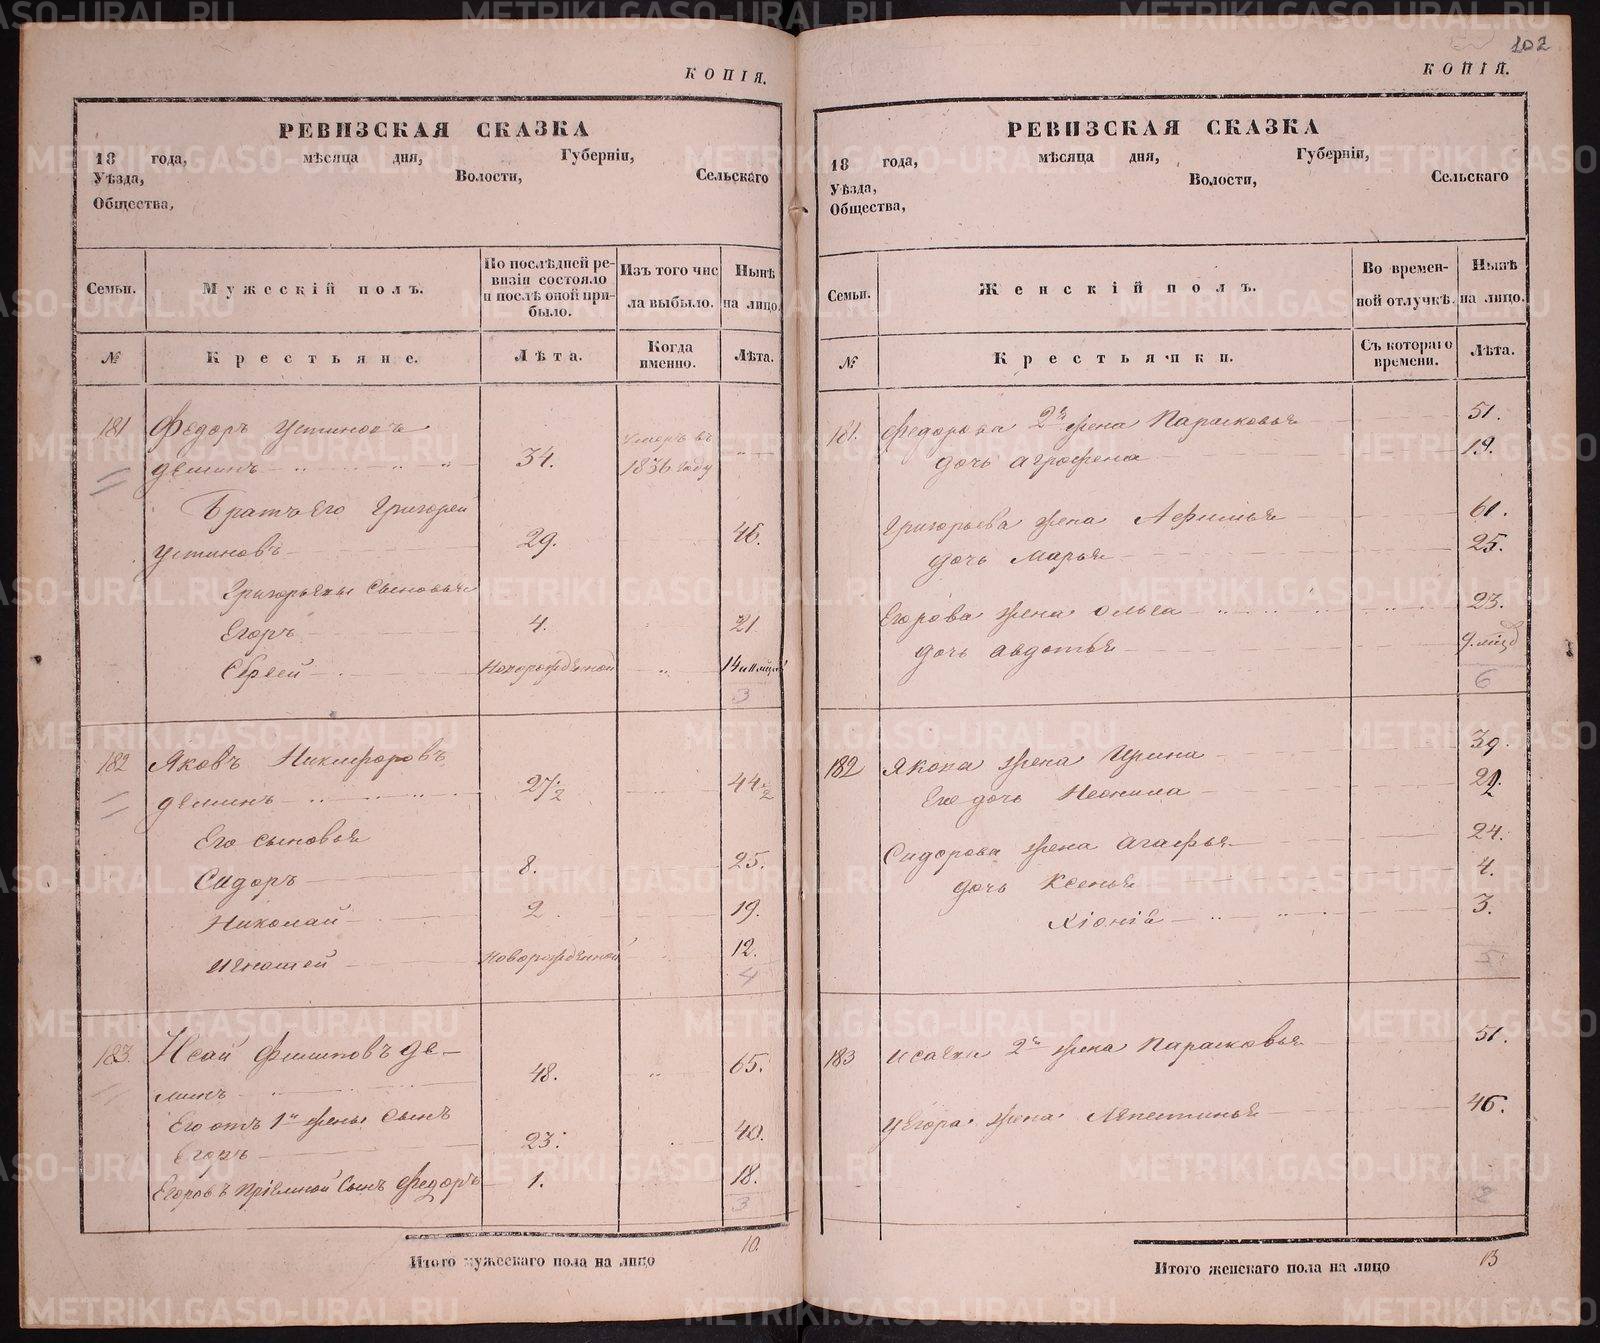 КОПІЯ.
РЕВИЗСКАЯ СКАЗКА
18 года, мѣсяца дня, Губерніи,
Уѣзда, Волости, Сельскаго
Общества,
Семьи. Мужескій полъ. По послѣдней ревизіи состояло и послѣ оной прибыло. Изъ того числа выбыло. Нынѣ на лицо.
№ Крестьяне. Лѣта. Когда именно. Лѣта.
181 Федоръ Устиновъ
Деминъ 34. Умеръ въ 1836 году
Братъ его Григорей
Устиновъ 29. 46.
Григорьевы сыновья
Егоръ 4. 21
Сергей Новорожденной 14 и 11 мцов
3
182 Яковъ Никифоровъ
Деминъ 27½ 44½
Его сыновья
Сидоръ 8. 25.
Николай 2. 19.
Игнатей Новорожденной 12.
4
183. Исай Филиповъ Де-
минъ 48. 65.
Его отъ 1й жены сынъ
Егоръ 23. 40.
Егоровъ пріемной сынъ Федоръ 1. 18.
3
Итого мужескаго пола на лицо 10.
102
КОПІЯ.
РЕВИЗСКАЯ СКАЗКА
18 года, мѣсяца дня, Губерніи,
Уѣзда, Волости, Сельскаго
Общества,
Семьи. Женскій полъ. Во временной отлучкѣ. Нынѣ на лицо.
№ Крестьянки. Съ котораго времени. Лѣта.
181. Федорова 2я жена Парасковья 51.
дочь Аграфена 19.
Григорьева жена Афимья 61.
дочь Марья 25.
Егорова жена Ольга 23.
дочь Авдотья 9. мцов
6
182 Якова жена Ирина 39.
Ее дочь Неонила
Сидорова жена Агафья 24.
дочь Ксенья 4.
Хіонія 3.
5
183 Исаева 2я жена Парасковья 51.
Егора жена Апестинья 46.
2
Итого женскаго пола на лицо 13
METRIKI.GASO-URAL.RU